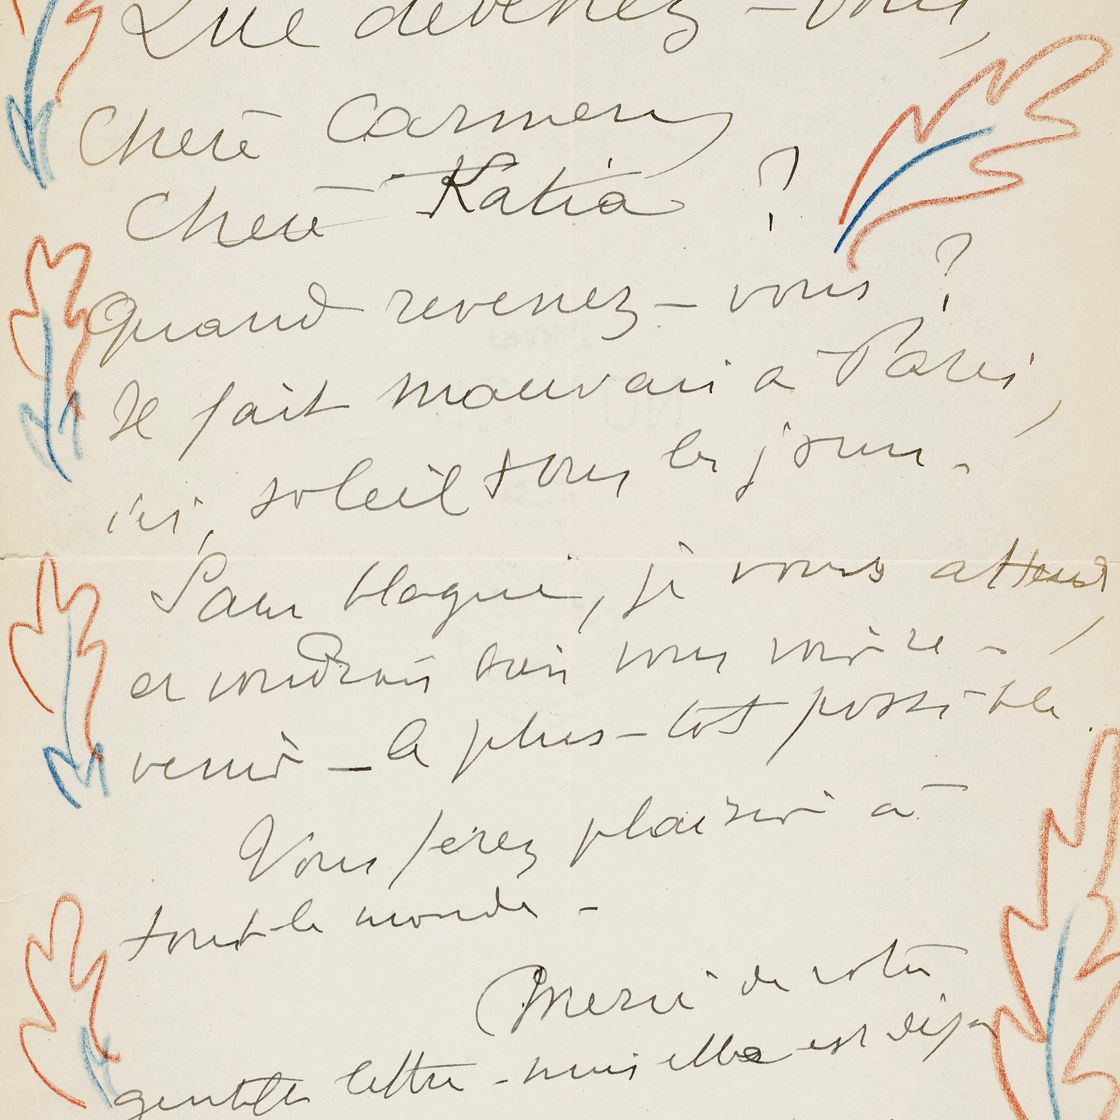 Que devenez-vous,
Chère Carmen,
Chère Katia ?
Quand revenez-vous ?
Il fait mauvais à Paris,
ici, soleil tous les jours.
Sans blague, je vous attend,
et voudrais bien vous voir re-
venir – le plus-tôt possible.
Vous ferez plaisir à
tout-le monde –
Merci de votre
gentille lettre – mais elle est déja